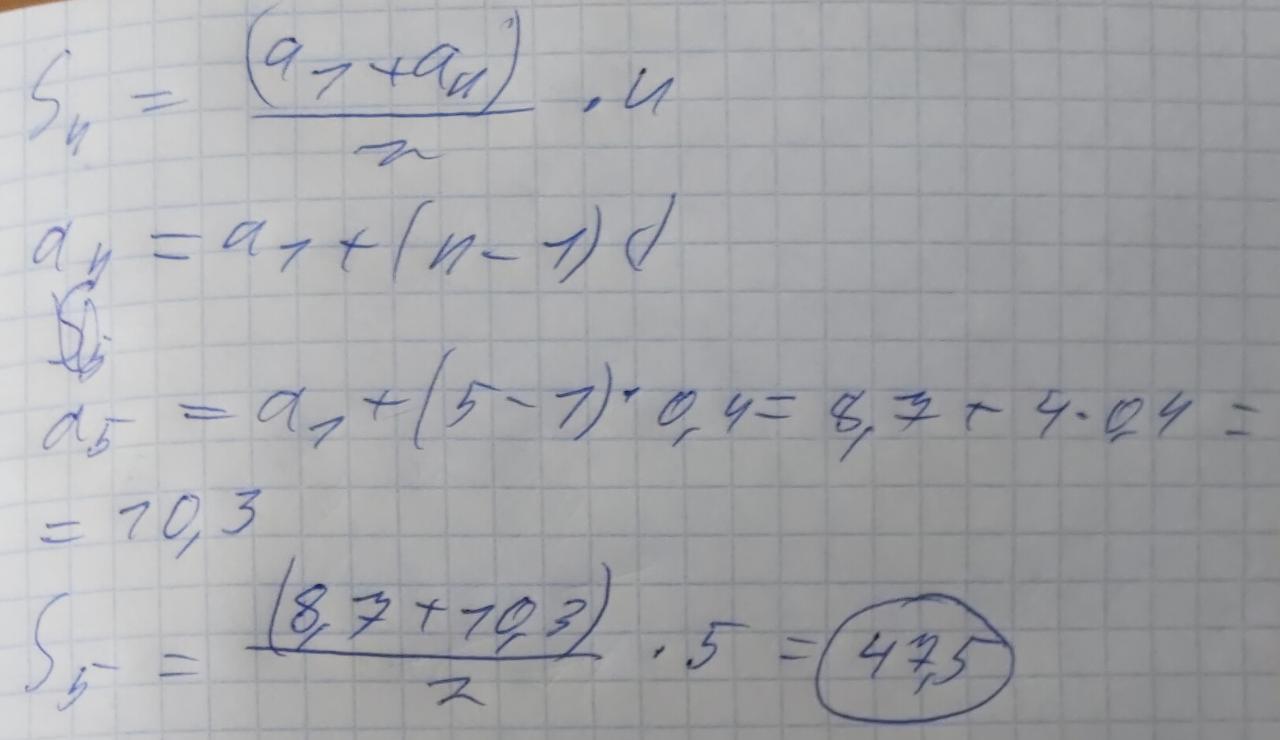 Sₙ = (a₁ + aₙ) / 2 · n
aₙ = a₁ + (n - 1) d
a₅ = a₁ + (5 - 1) · 0,4 = 8,7 + 4 · 0,4 =
= 10,3
S₅ = (8,7 + 10,3) / 2 · 5 = 47,5